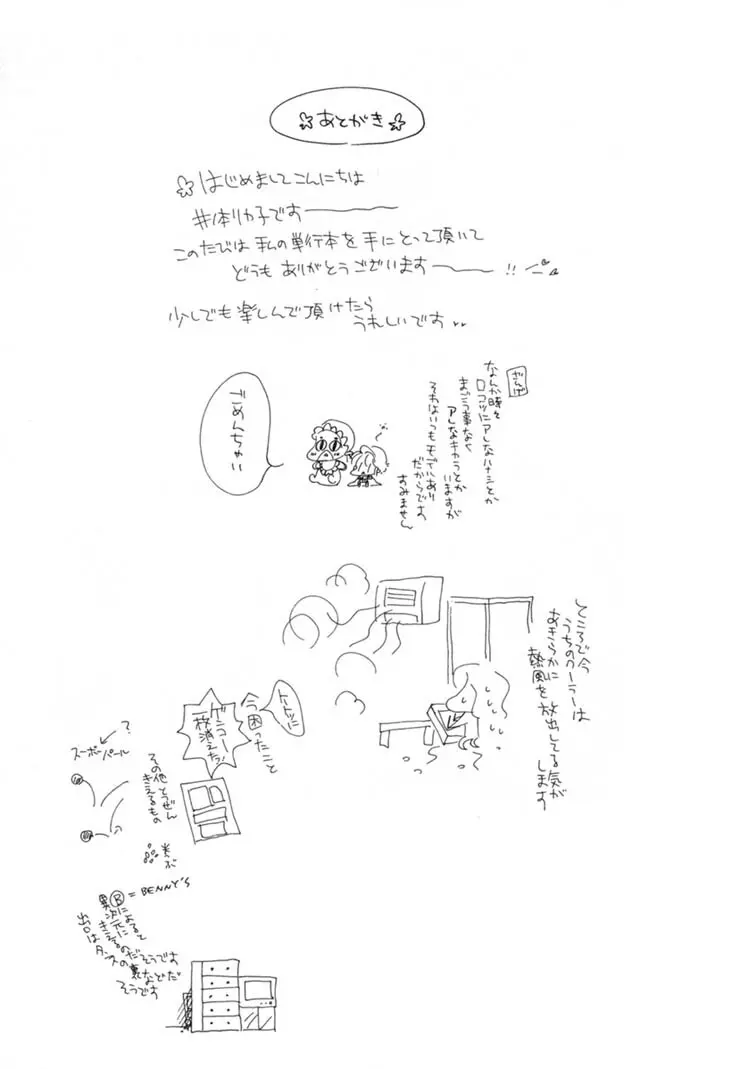 ☆あとがき☆
☆はじめましてこんにちは
井体リカ子です
このたびは私の単行本を手にとって頂いて
どうもありがとうございます !!
少しでも楽しんで頂けたら
うれしいです
ざんげ
なんか時々
ロコツにアレなハナシとか
まごう事なく
アレなキャラとか
いますが
それはいつもモデルあり
だからです
すみません
ごめんちゃい
ところで今
うちのクーラーは
あきらかに
熱風を放出してる気が
します
トートツに
今困ったこと
ゲンコー
一枚消えた!
その他とうぜん
きえるもの
?
スーパーボール
米ぶ
Ⓑ = BENNY'S
によると
異次元に
きえるのだそうです
出口は
タンスの裏などだ
そうです